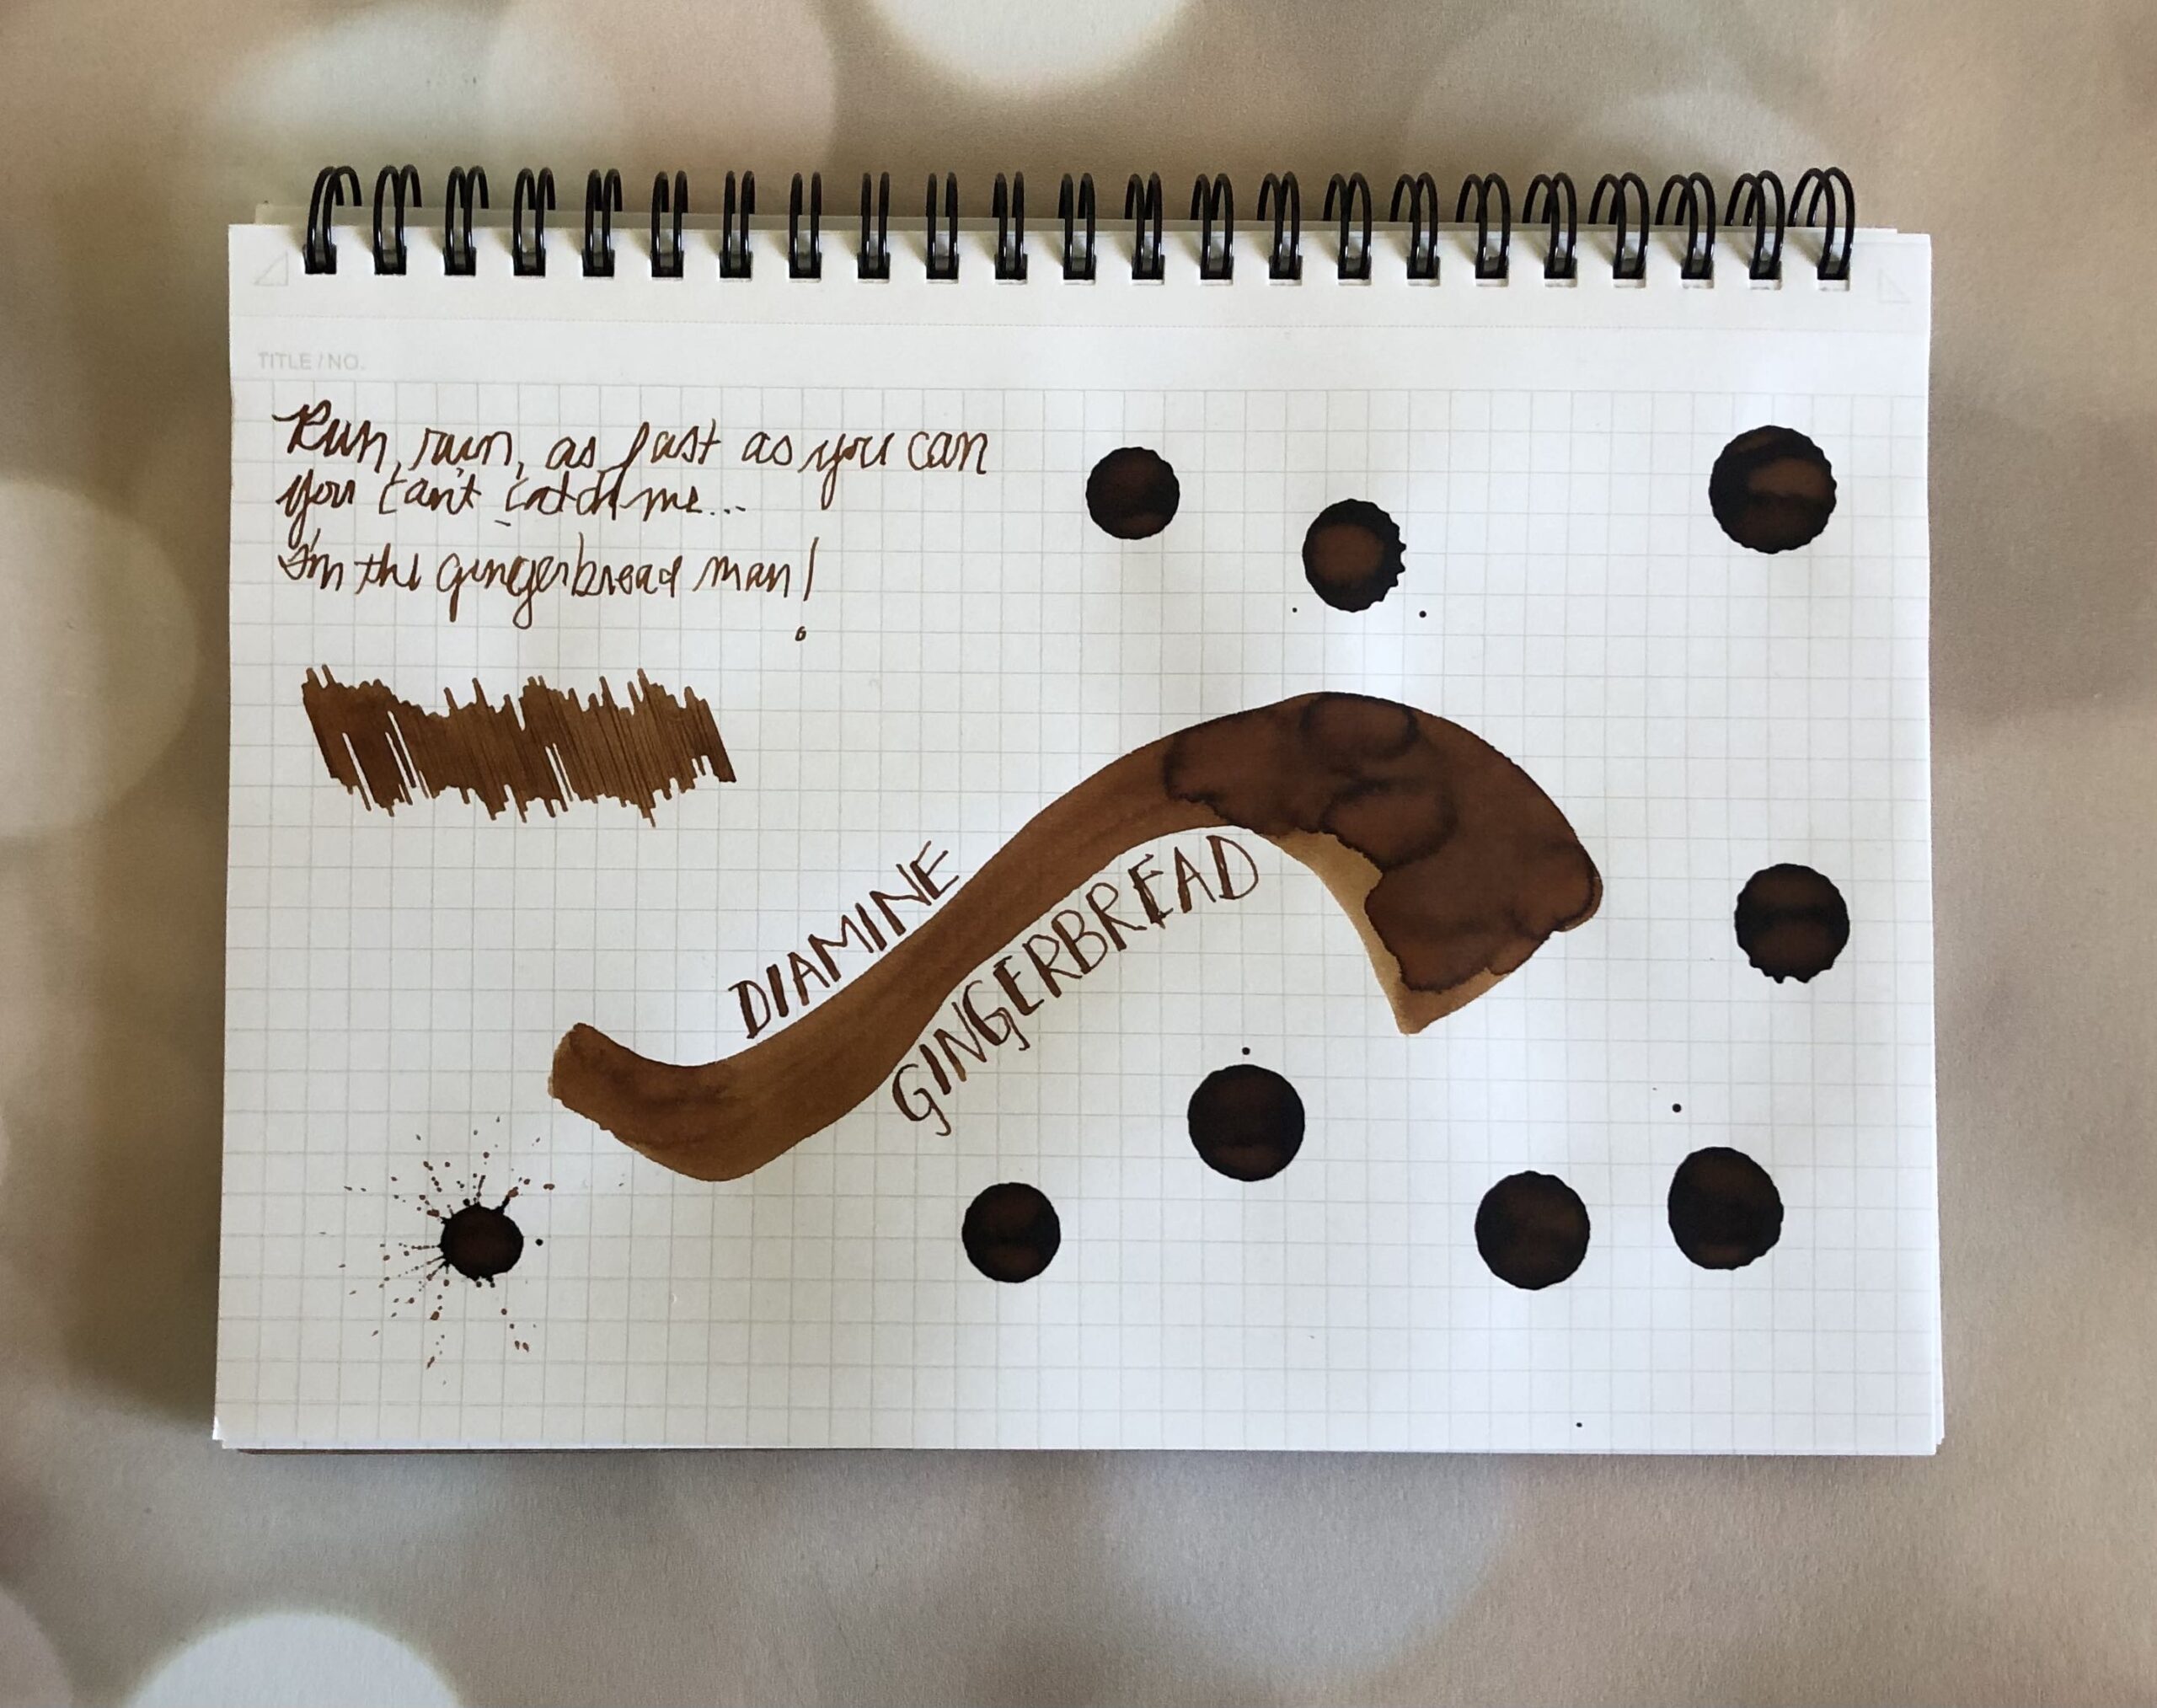 TITLE / NO.
Run, run, as fast as you can
you can't catch me...
I'm the gingerbread man!
DIAMINE
GINGERBREAD